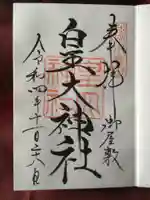 奉拝
御屋敷
皇大神社
令和四年十二月二十八日